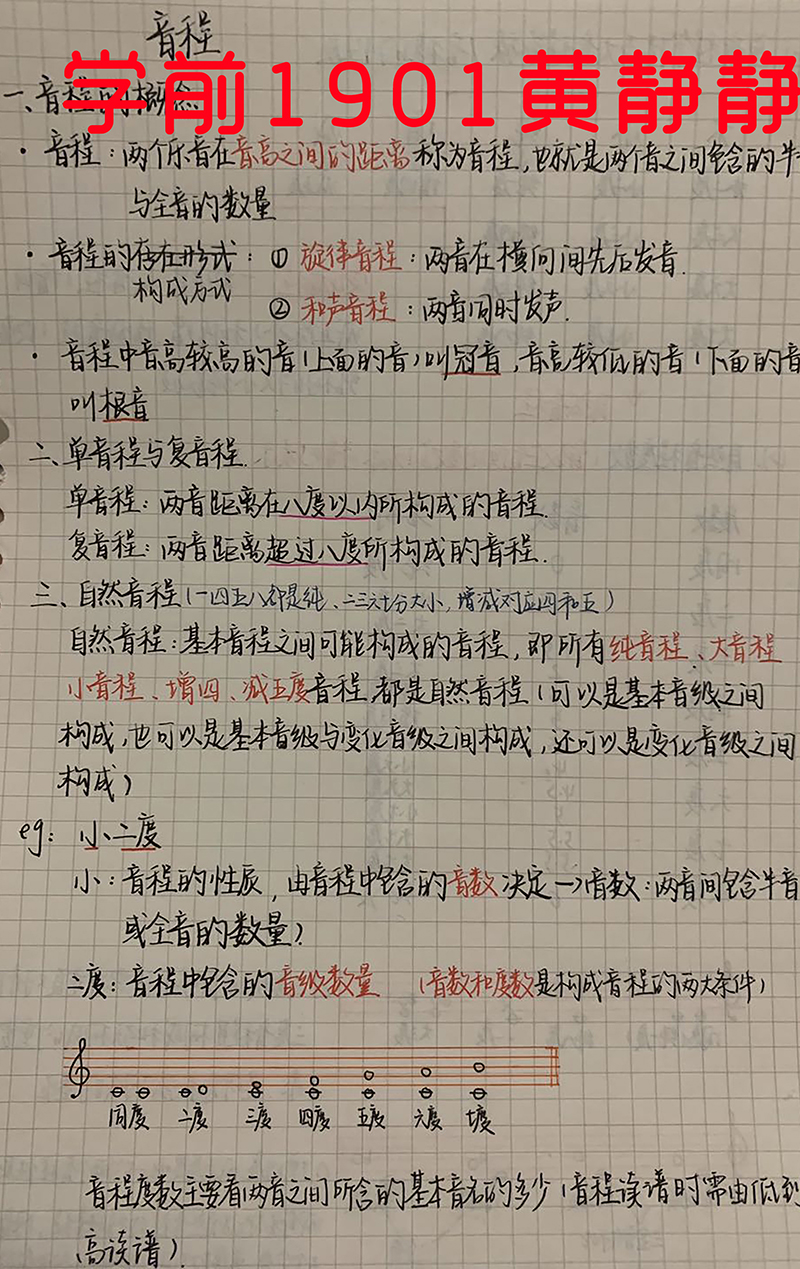 音程
学前1901黄静静
一、音程的概念
· 音程：两个乐音在音高之间的距离称为音程，也就是两个音之间包含的半
与全音的数量
· 音程的存在形式：① 旋律音程：两音在横向间先后发音.
构成方式
② 和声音程：两音同时发声.
· 音程中音高较高的音(上面的音)叫冠音，音高较低的音(下面的音
叫根音
二、单音程与复音程.
单音程：两音距离在八度以内所构成的音程.
复音程：两音距离超过八度所构成的音程.
三、自然音程(一四五八都是纯、二三六七分大小，增减对应四和五)
自然音程：基本音程之间可能构成的音程，即所有纯音程、大音程
小音程、增四、减五度音程，都是自然音程(可以是基本音级之间
构成，也可以是基本音级与变化音级之间构成，还可以是变化音级之间
构成)
eg: 小二度
小：音程的性质，由音程中包含的音数决定一>(音数：两音间包含半音
或全音的数量)
二度：音程中包含的音级数量 (音数和度数是构成音程的两大条件)
同度 二度 三度 四度 五度 六度 七度
音程度数主要看两音之间所含的基本音名的多少(音程读谱时需由低到
高读谱).